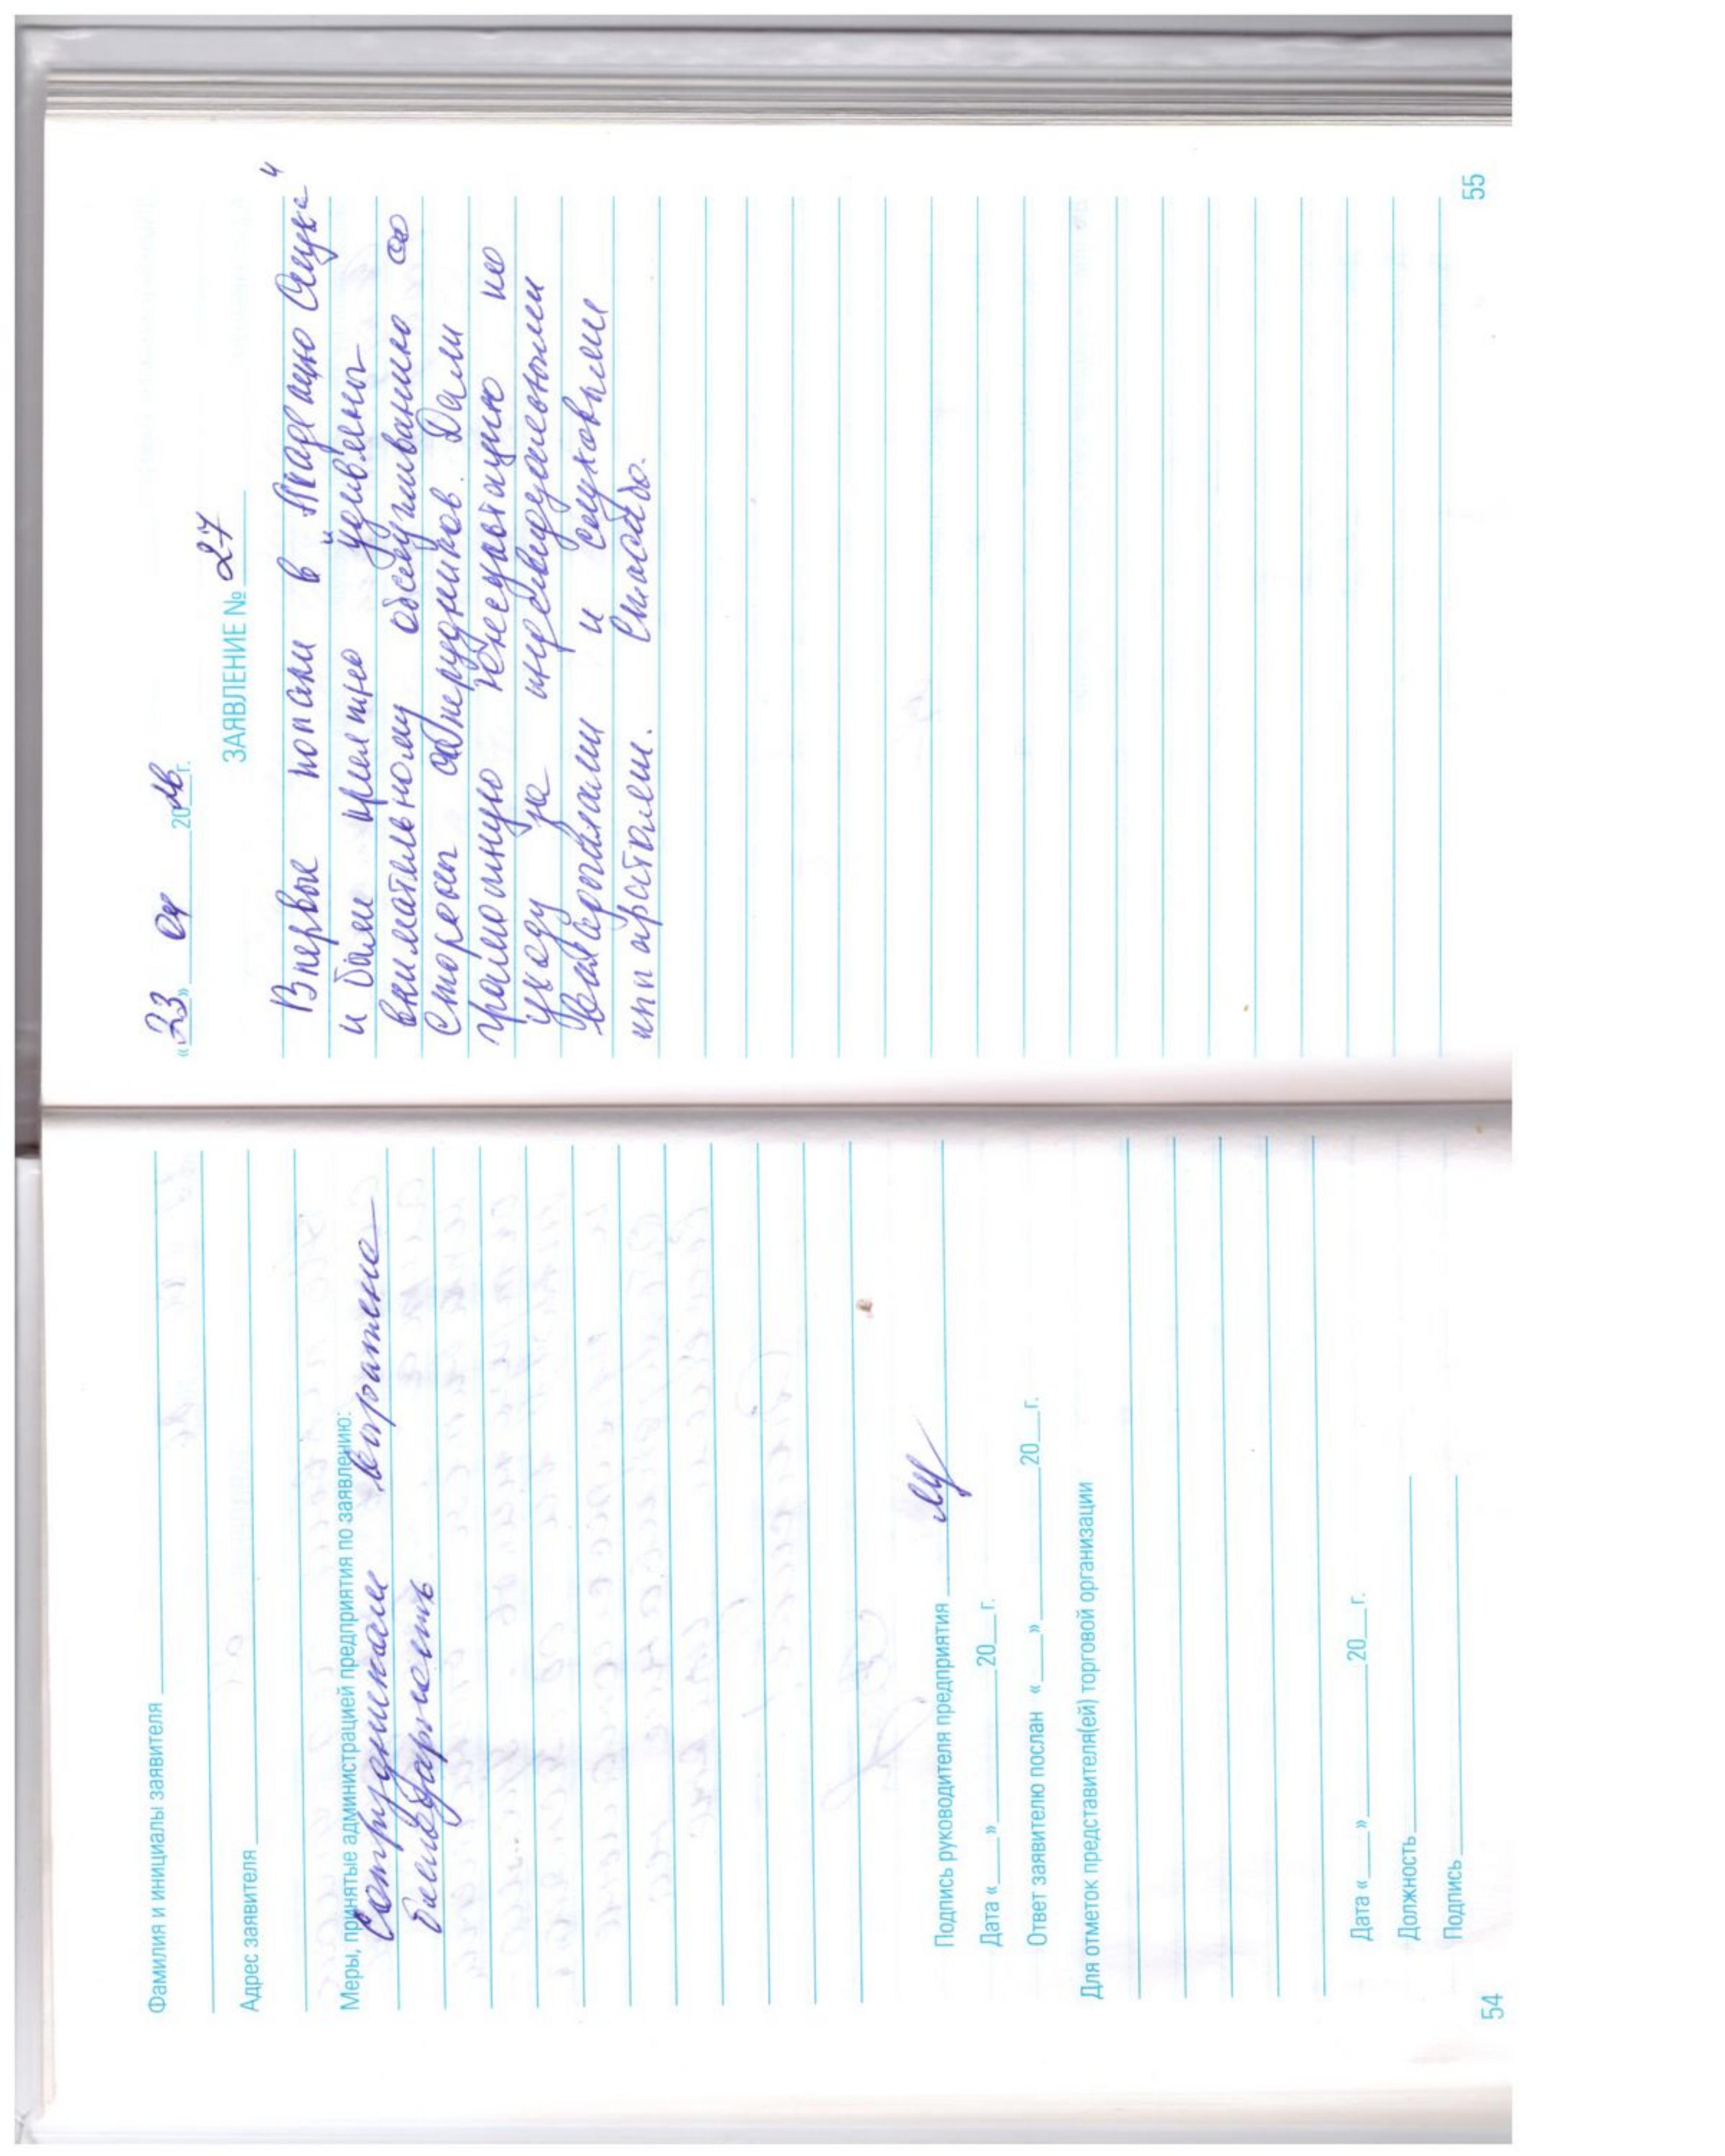 Фамилия и инициалы заявителя
Адрес заявителя
Меры, принятые администрацией предприятия по заявлению:
Сотрудникам выражена
благодарность
Подпись руководителя предприятия
Дата «___»______20__г.
Ответ заявителю послан «___»______20__г.
Для отметок представителя(ей) торговой организации
Дата «___»______20__г.
Должность
Подпись
54
«23» 04 2016 г.
ЗАЯВЛЕНИЕ № 27
Впервые попали в Академию Слуха"
и были приятно удивлены
внимательному обслуживанию со
стороны сотрудников. Дали
грамотную консультацию по
уходу за индивидуальными
вкладышами и слуховыми
аппаратами. Спасибо.
55